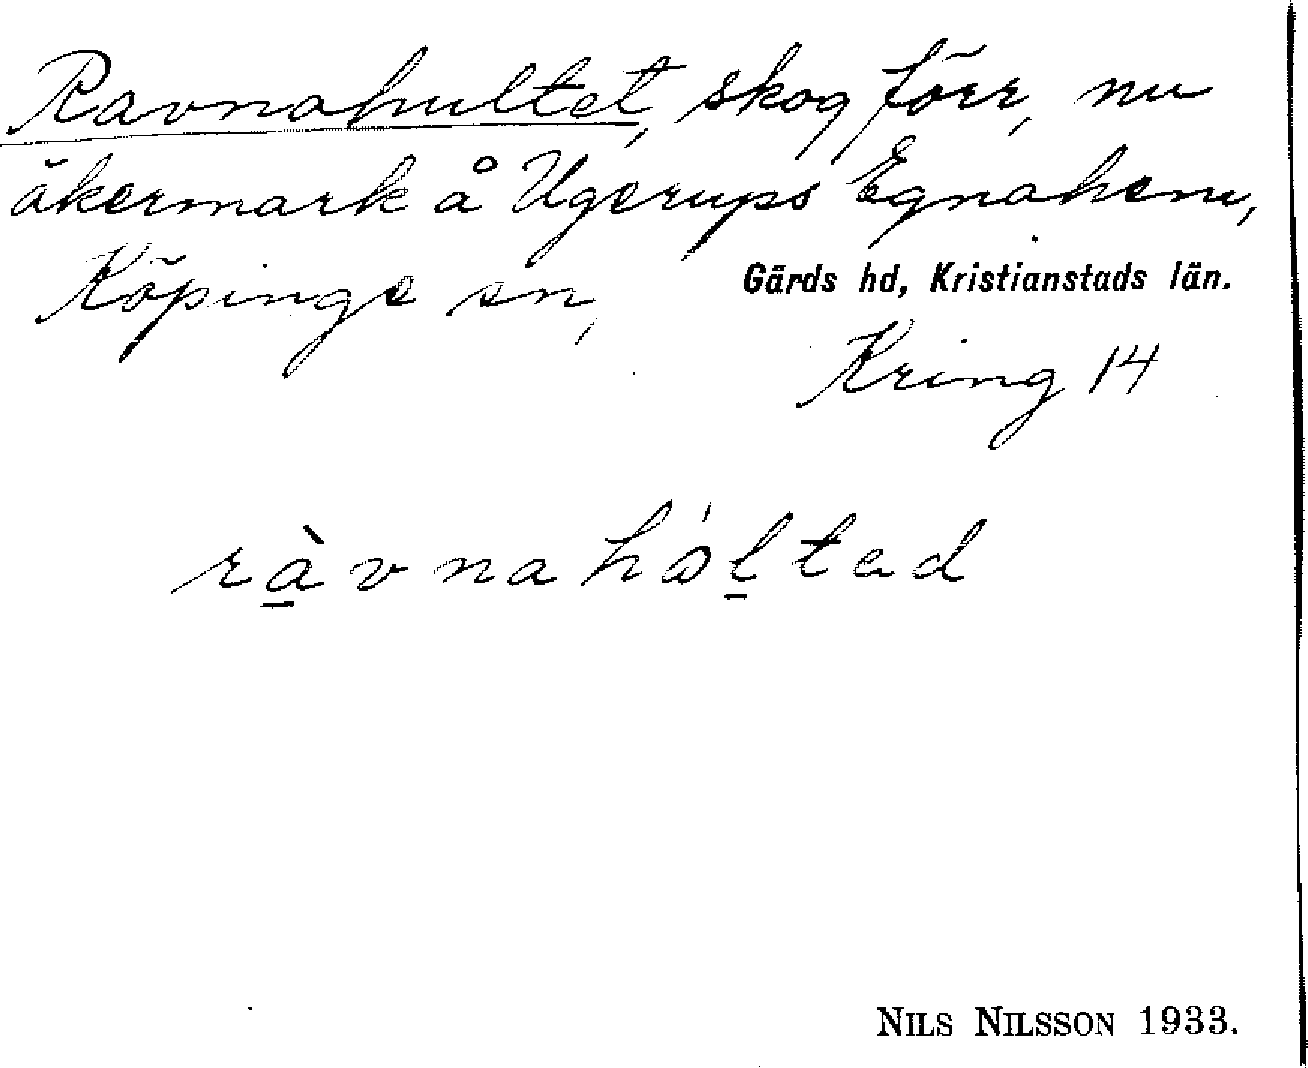 Ravnahultet, skog förr, nu
åkermark å Ugerups Egnahem,
Köpinge sn, Gärds hd, Kristianstads län.
Kring 14
rà̠vnahó̵l̠tad
NILS NILSSON 1933.